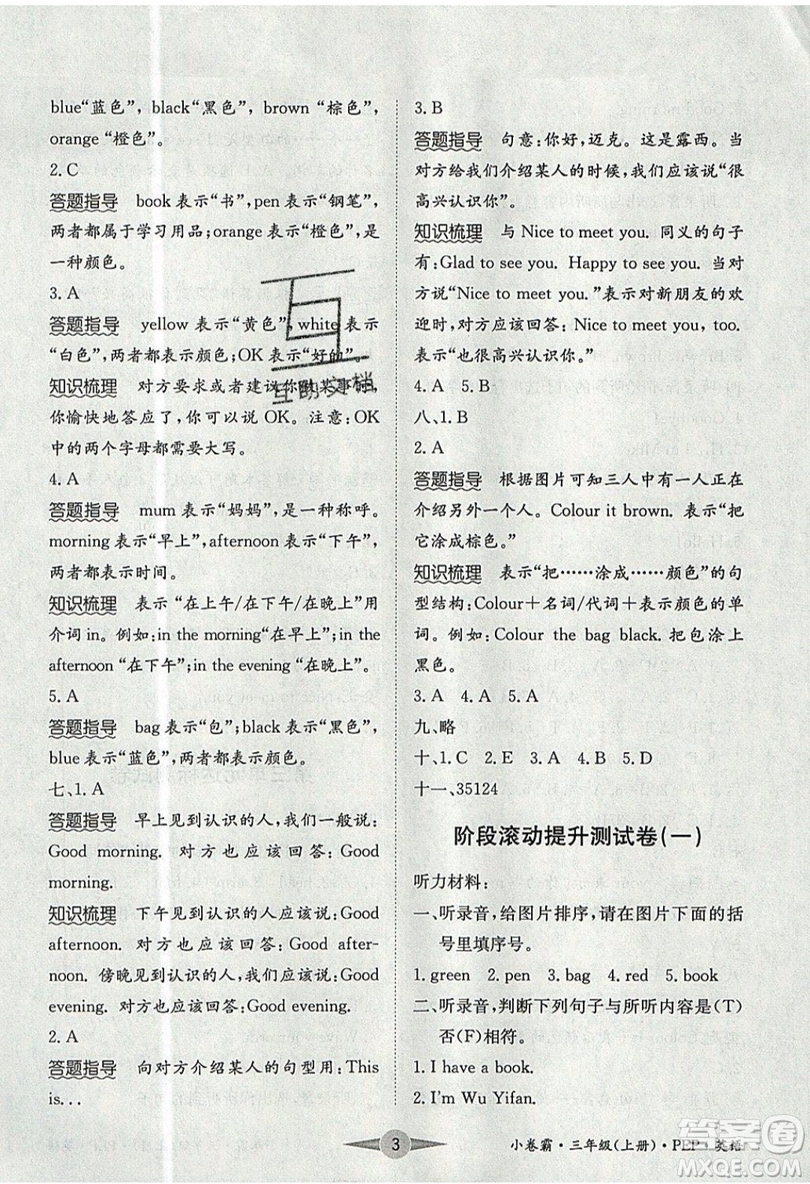 blue“蓝色”, black“黑色”, brown “棕色”,
orange “橙色”。
2. C
答题指导 book 表示“书”, pen 表示“钢笔”,
两者都属于学习用品;orange“橙色”,是
一种颜色。
3. A
答题指导 yellow 表示“黄色”, white 表示
“白色”,两者都表示颜色;OK 表示“好的”。
知识梳理 对方要求或者建议你做某事时,
你愉快地答应了,你可以说 OK。注意:OK
中的两个字母都需要大写。
4. A
答题指导 mum 表示“妈妈”,是一种称呼。
morning 表示“早上”, afternoon 表示“下午”,
两者都表示时间。
知识梳理 表示 “在上午/在下午/在晚上”用
介词 in。例如:in the morning“在早上”;in the
afternoon “在下午”;in the evening “在晚上”。
5. A
答题指导 bag 表示“包”;black 表示“黑色”,
blue 表示“蓝色”,两者都表示颜色。
七、1. A
答题指导 早上见到认识的人,我们一般说:
Good morning. 对方也应该回答: Good
morning.
知识梳理 下午见到认识的人应该说:Good
afternoon. 对方也应该回答: Good after-
noon. 傍晚见到认识的人,应该说: Good
evening. 对方也应该回答:Good evening.
2. A
答题指导 向对方介绍某人的句型用:This
is...
3. B
答题指导 句意:你好,迈克。这是露西。当
对方给我们介绍某人的时候,我们应该说“很
高兴认识你”。
知识梳理 与 Nice to meet you. 同义的句子
有:Glad to see you. Happy to see you. 当对
方说“Nice to meet you.”表示对新朋友的欢
迎时,对方应该回答:Nice to meet you, too.
表示“也很高兴认识你。”
4. A 5. B
八、1. B
2. A
答题指导 根据图片可知三人中有一人正在
介绍另外一个人。Colour it brown. 表示“把
它涂成棕色。”
知识梳理 表示“把……涂成……颜色”的句
型结构:Colour+名词/代词+表示颜色的单
词。例如:Colour the bag black. 把包涂上
黑色。
3. A 4. A 5. A
九、略
十、1. C 2. E 3. A 4. B 5. D
十一、35124
阶段滚动提升测试卷(一)
听力材料:
一、听录音,给图片排序,请在图片下面的括
号里填序号。
1. green 2. pen 3. bag 4. red 5. book
二、听录音,判断下列句子与所听内容是(T)
否(F)相符。
1. I have a book.
2. I'm Wu Yifan.
互助文档
3
小卷霸·三年级(上册)·PEP 英语
答案圈
MXQE.COM